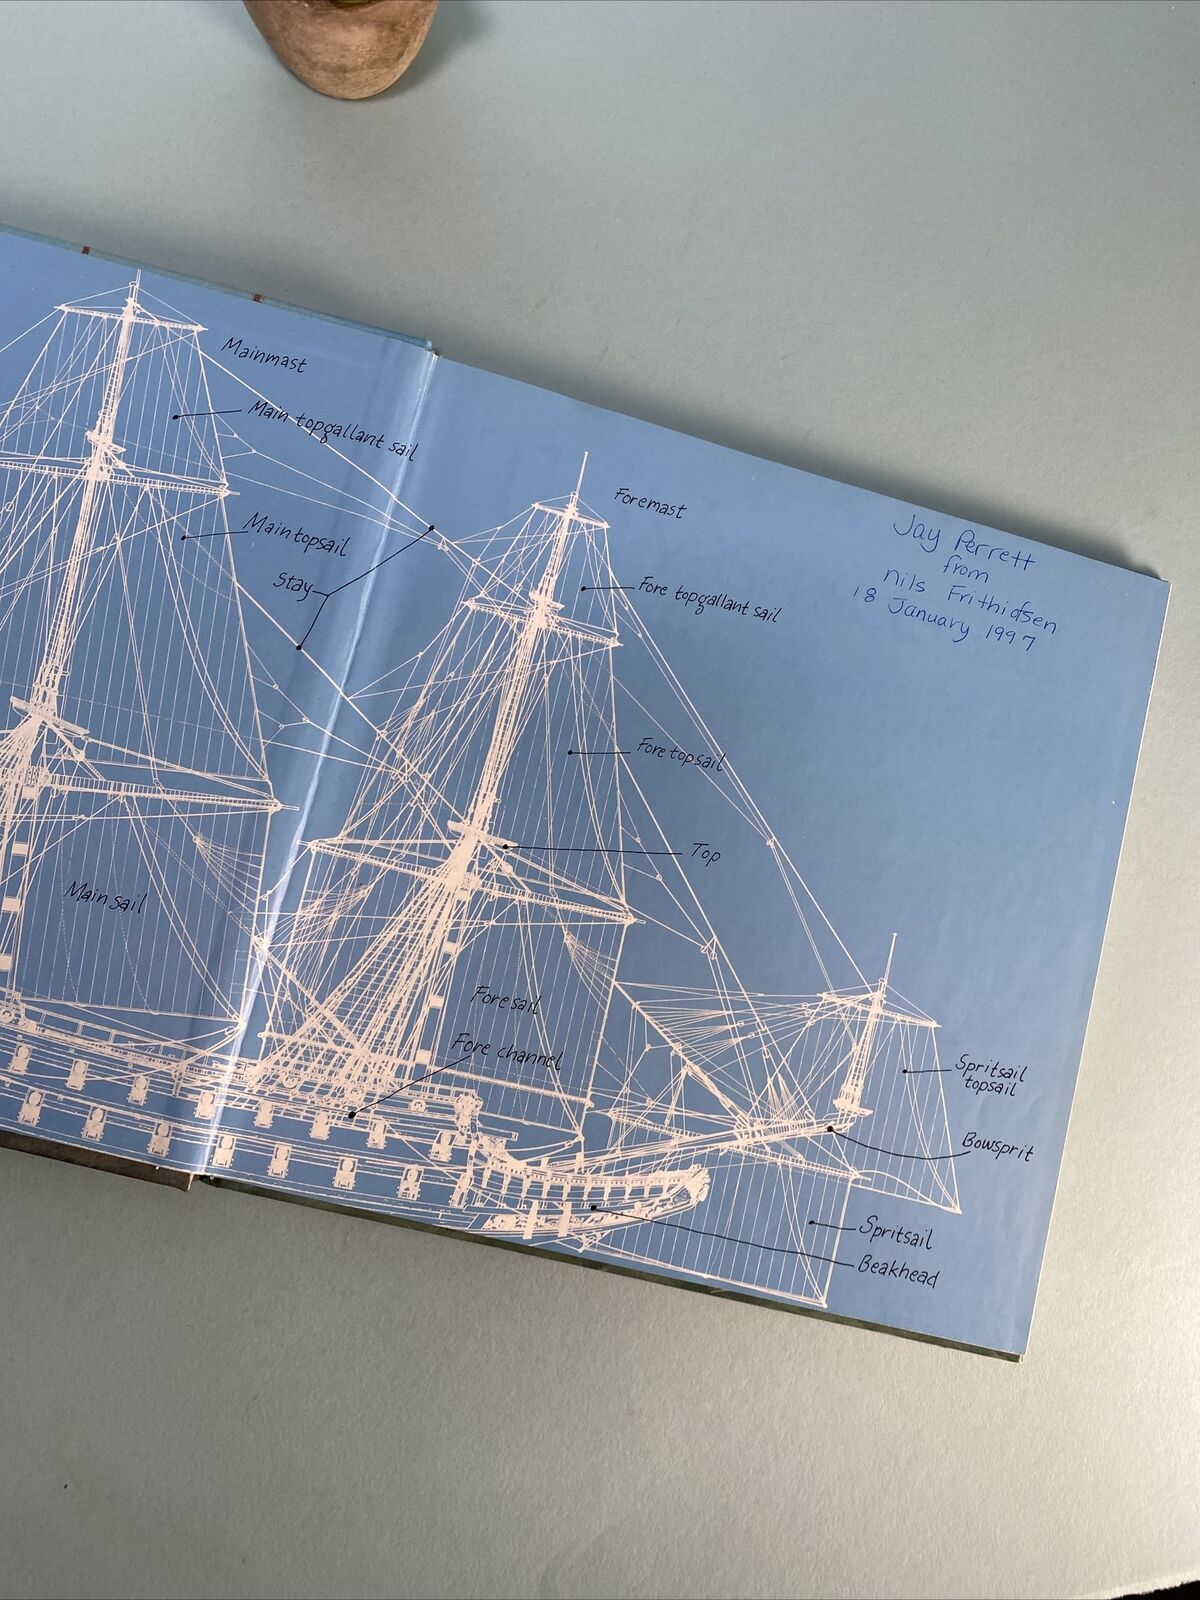 Mainmast
Main topgallant sail
Main topsail
Stay
Main sail
Foremast
Fore topgallant sail
Fore topsail
Top
Fore sail
Fore channel
Spritsail
topsail
Bowsprit
Spritsail
Beakhead
Jay Perrett
from
nils Frithidsen
18 January 1997